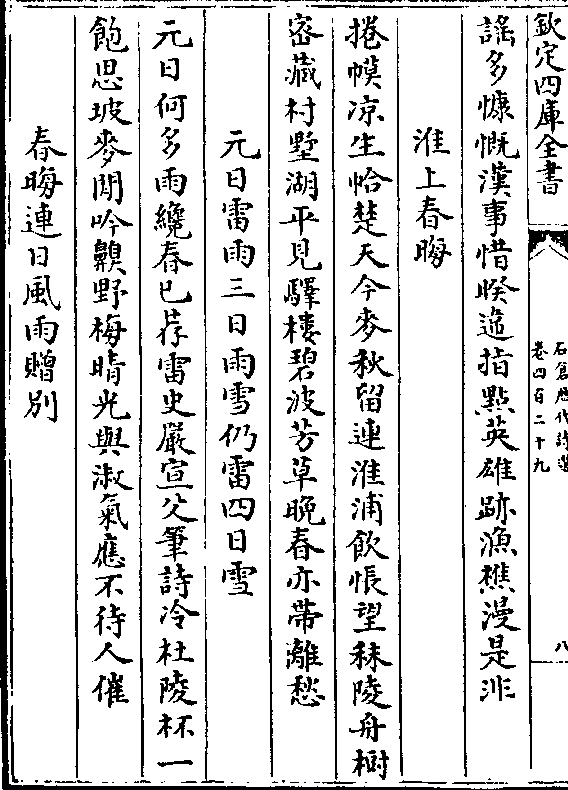 欽定四庫全書
石倉歴代詩選
卷四百二十九
八
謡多慷慨漢事惜暌違指點英雄跡漁樵漫是非
淮上春晦
捲幙凉生恰楚天今麥秋留連淮浦飲悵望秣陵舟樹
宻藏村墅湖平見驛樓碧波芳草晚春亦帶離愁
元日雷雨三日雨雪仍雷四日雪
元日何多雨纔春已荐雷史嚴宣父筆詩冷杜陵杯一
飽思坡麥閒吟齅野梅晴光與淑氣應不待人催
春晦連日風雨贈别